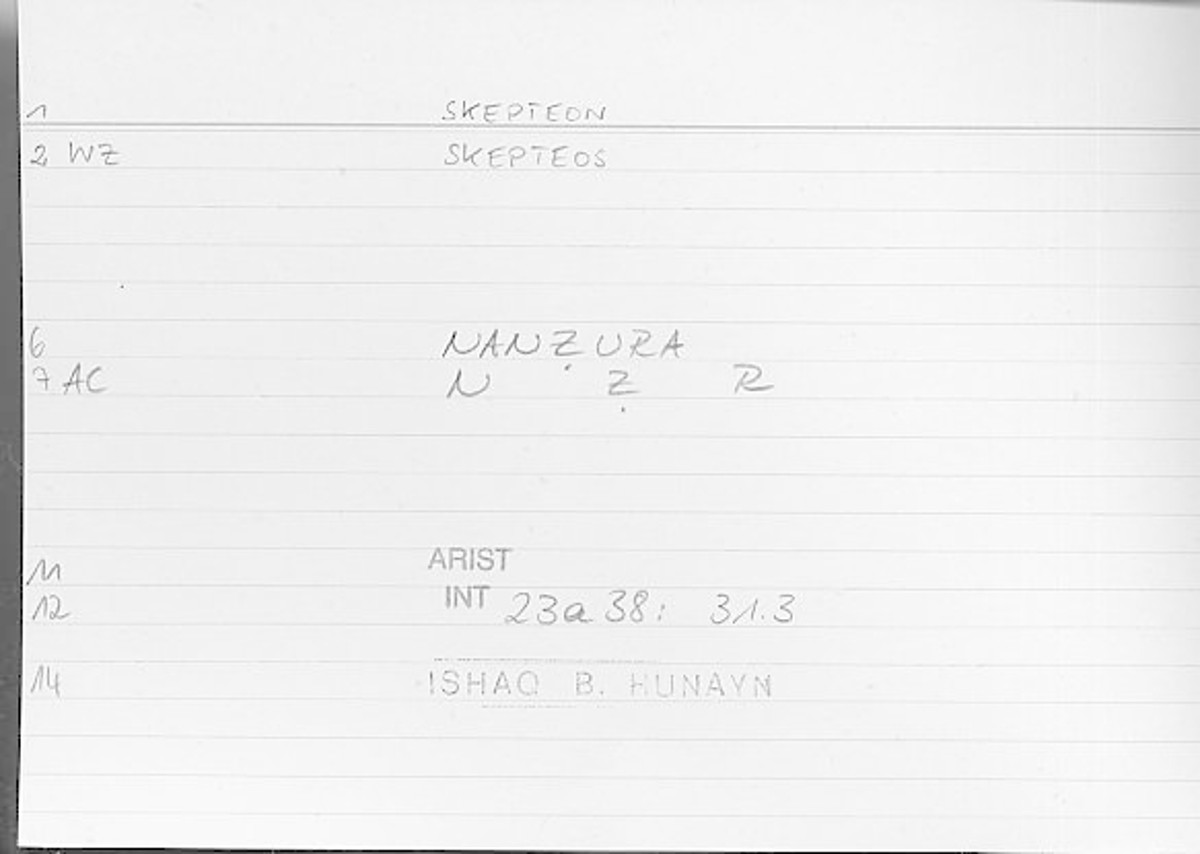 1 SKEPTEON
2 WZ SKEPTEOS
6 NANẒURA
7 AC N Ẓ R
11 ARIST
12 INT 23a38: 31.3
14 ISHAQ B. HUNAYN